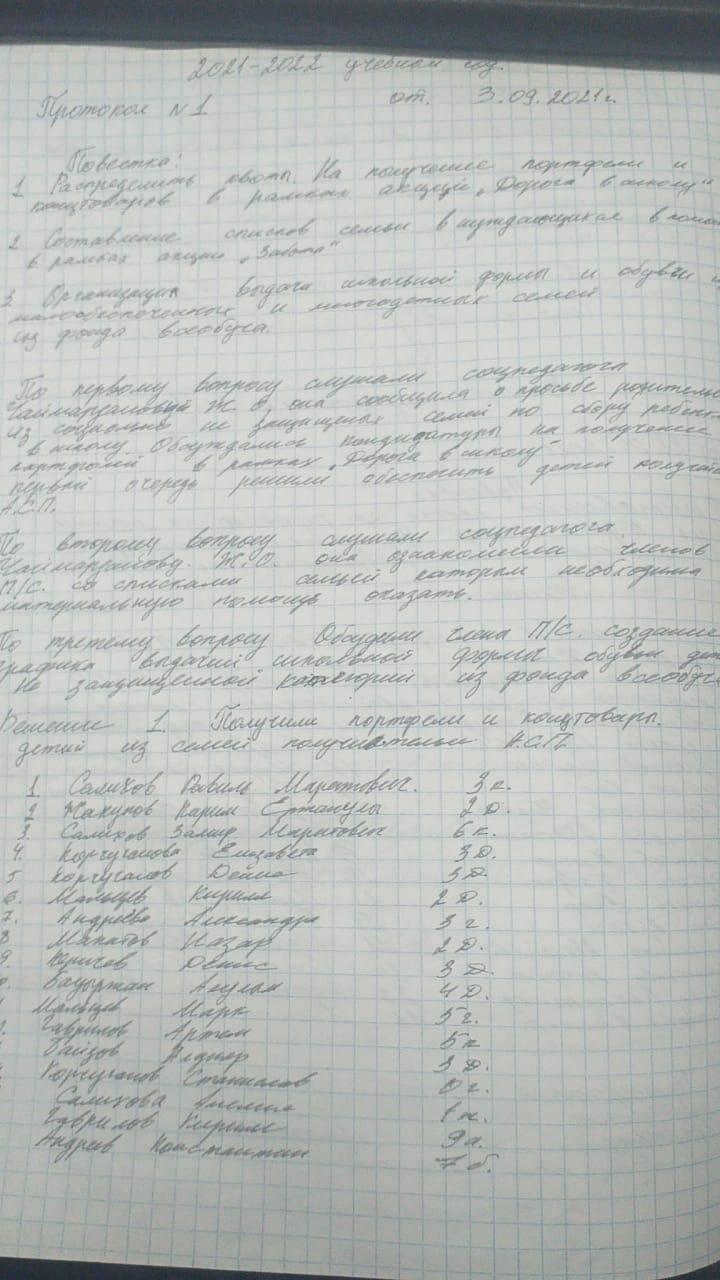 2021-2022 учебный год.
Протокол №1 от. 3.09.2021г.
Повестка:
1 Распределить квоты. На получение портфели и
концтоваров в рамках акции „Дорога в школу"
2 Составление списков семьи в нуждающихся в
в рамках акции „Забота"
3 Организация выдачи школьной формы и обуви
малообеспеченных и многодетных семей
из фонда всеобуча.
По первому вопросу слушали соцпедагога
Ж.О, она сообщила о просьбе
из социально не защищеных семей по сбору
в школу. Обсуждались кандидатуры на получение
портфелей в рамках „Дорога в школу"
первой очередь решили обеспечить детей
А.С.П.
По второму вопросу слушали соцпедагога
Ж.О она ознакомила членов
П/С. со списками семьей каторым необходима
материальную помощь оказать.
По третему вопросу Обсудили члены П/С. создание
графика выдачий школьной формы обуви
Не защищенной категорий из фонда всеобуча
Решение 1. Получили портфели и концтовары.
детий из семей А.С.П.
1 Салихов Равиль Маратович. 3к.
2 Жакупов Карим 2 Д.
3. Салихов Замир Маратович 6к.
4. Корчуганова Елизавета 3Д.
5 Корчуганов 3Д
6. Мальцев Кирилл 2 Д.
7. Андреева Александра 3г.
8 Назар 2Д.
9. Денис 3 Д.
Бауыржан 4Д.
Мальцев Марк 5г.
Гаврилов Артем 5к
3 Д.
Корчуганов Станислав 0г.
Салихова 1к.
Гаврилов Кирилл 9а.
Андреев Константин 7б.